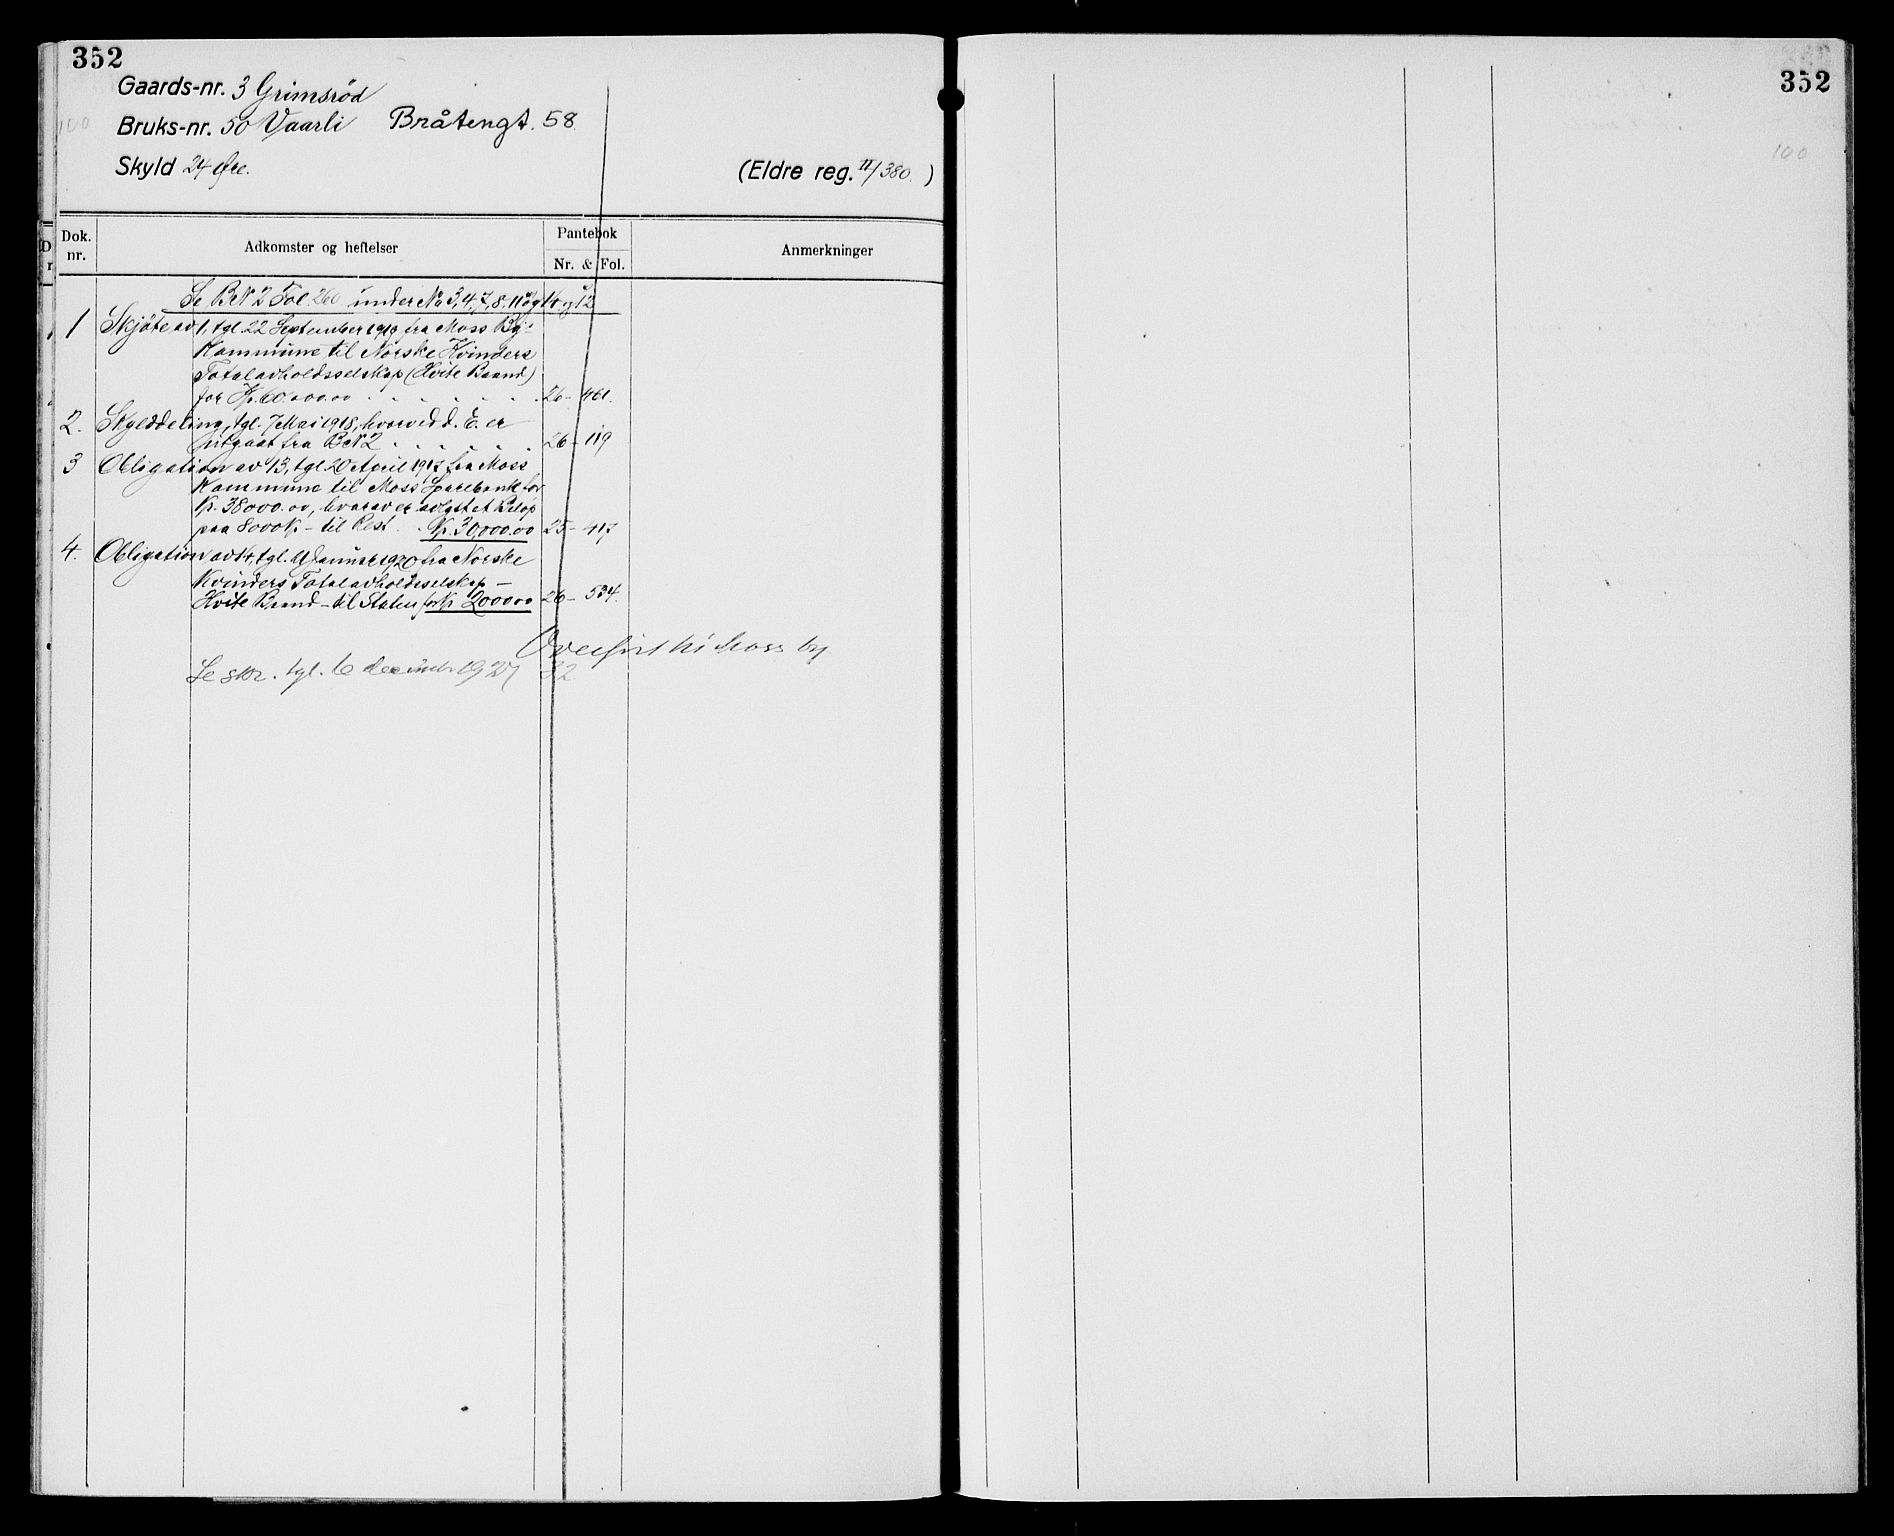 352
Gaards-nr. 3 Grimsröd
100
Bruks-nr. 50 Vaarli Bråtengt. 58.
Skyld 24 Øre.
(Eldre reg. II/380.)
Dok. nr.
Adkomster og heftelser
Pantebok
Nr. & Fol.
Anmerkninger
Se BN 2 Fol. 260 under No 3, 4, 7, 8, 11 og 12
1 Skjöte av 1, tgl. 22 September 1919 fra Moss By-
Kommune til Norske Kvinders
Totalavholdsselskap (Hvite Baand)
for Kr. 60.000.00 . . . . . . 26 - 461.
2. Skylddeling, tgl. 7 Mai 1918, hvorved d. E. er
utgaat fra BN 2 . . . . . 26 - 119
3 Obligation av 13, tgl. 20 April 1917 fra Moss
Kommune til Moss Sparebank for
Kr. 38000.00, hvorav er avlyst et Belöp
paa 8000 Kr - til Rest . . Kr. 30,000.00 25 - 417
4. Obligation av 14, tgl. Januar 1920 fra Norske
Kvinders Totalavholdsselskap -
Hvite Baand - til Staten for Kr 20000 26 - 534.
Overfört til Moss by
Se skr. tgl. 6 december 1927 32
352
100